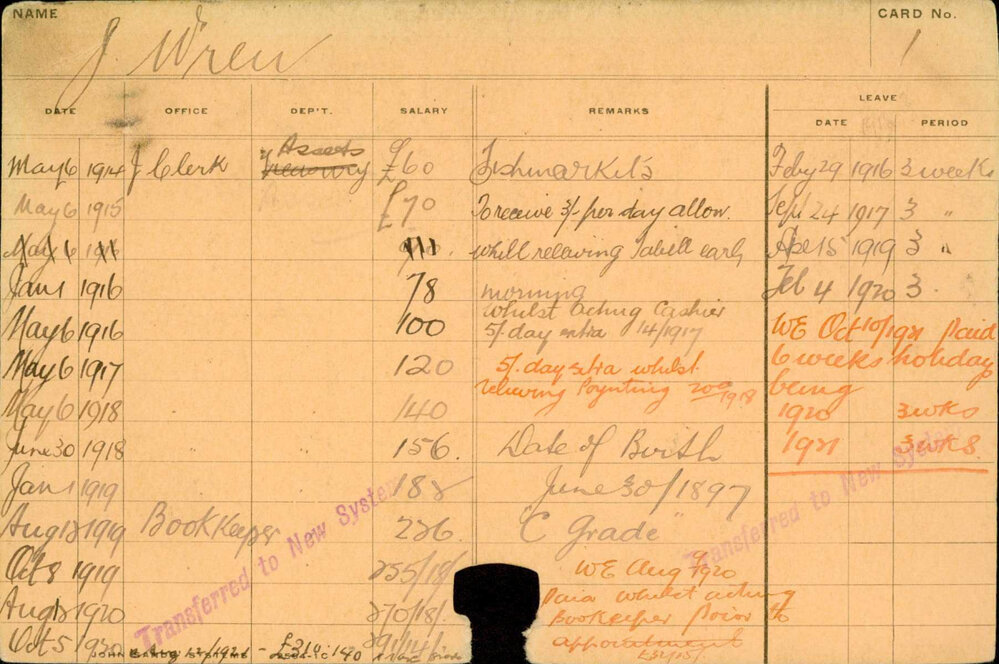 NAME
CARD No.
J. Wren
1
DATE OFFICE DEP'T. SALARY REMARKS LEAVE
DATE PERIOD
May 6 1914 J Clerk Assets £60 Fishmarkets Feby 29 1916 3 weeks
Treasury
May 6 1915 £70 To receive 3/- per day allow. Sept 24 1917 3 "
May 6 1916 whilst relieving Tabell early Apl 15 1919 3 "
Jan 1 1916 78 morning Feb 4 1920 3
May 6 1916 100 whilst acting Cashier
5/- day extra 1/4/1917 WE Oct 10/1921 paid
May 6 1917 120 5/- day extra whilst 6 weeks holiday
relieving Poynting 1918 being
May 6 1918 140 1920 3 wks
June 30 1918 156. Date of Birth 1921 3 wks.
Jan 1 1919 188 June 30/1897
Aug 12 1919 Bookkeeper 226. "C Grade"
Oct 8 1919 255/18/ WE Aug 9 1920
Aug 12 1920 270/18/ Paid whilst acting
bookkeeper prior to
Oct 5 1920 291/14/ appointment
Transferred to New System
Transferred to New System
JOHN SANDS SYSTEMS